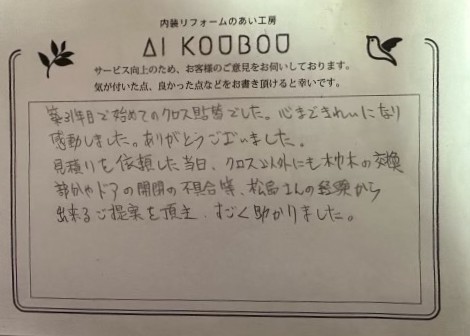 内装リフォームのあい工房
AI KOUBOU
サービス向上のため、お客様のご意見をお伺いしております。
気が付いた点、良かった点などをお書き頂けると幸いです。
築31年目で始めてのクロス貼替でした。心まできれいになり
感動しました。ありがとうございました。
見積りを依頼した当日、クロス以外にも木の交換
部分やドアの開閉の不具合等、松島さんの経験から
出来るご提案を頂き、すごく助かりました。